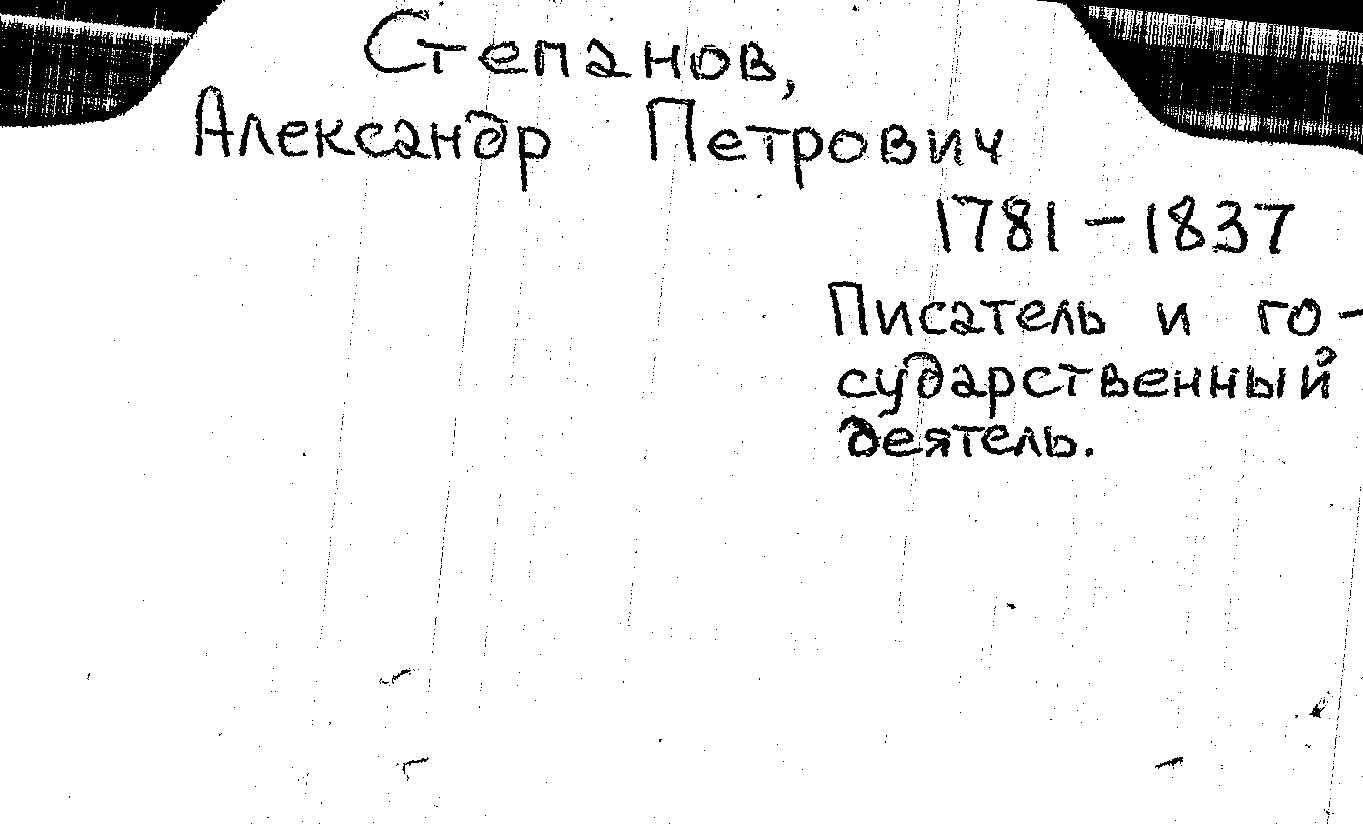 Степанов,
Александр Петрович
1781 – 1837
Писатель и го-
сударственный
деятель.